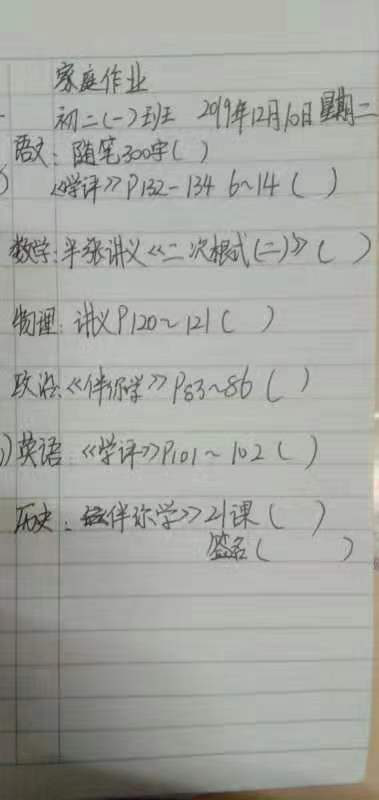 家庭作业
初二(一)班 2019年12月10日星期二
语文：随笔300字( )
《学评》P132-134 6~14 ( )
数学：半张讲义《二次根式(二)》( )
物理：讲义P120~121( )
政治：《伴你学》P83~86 ( )
英语：《学评》P101~102( )
历史：《伴你学》21课( )
签名( )